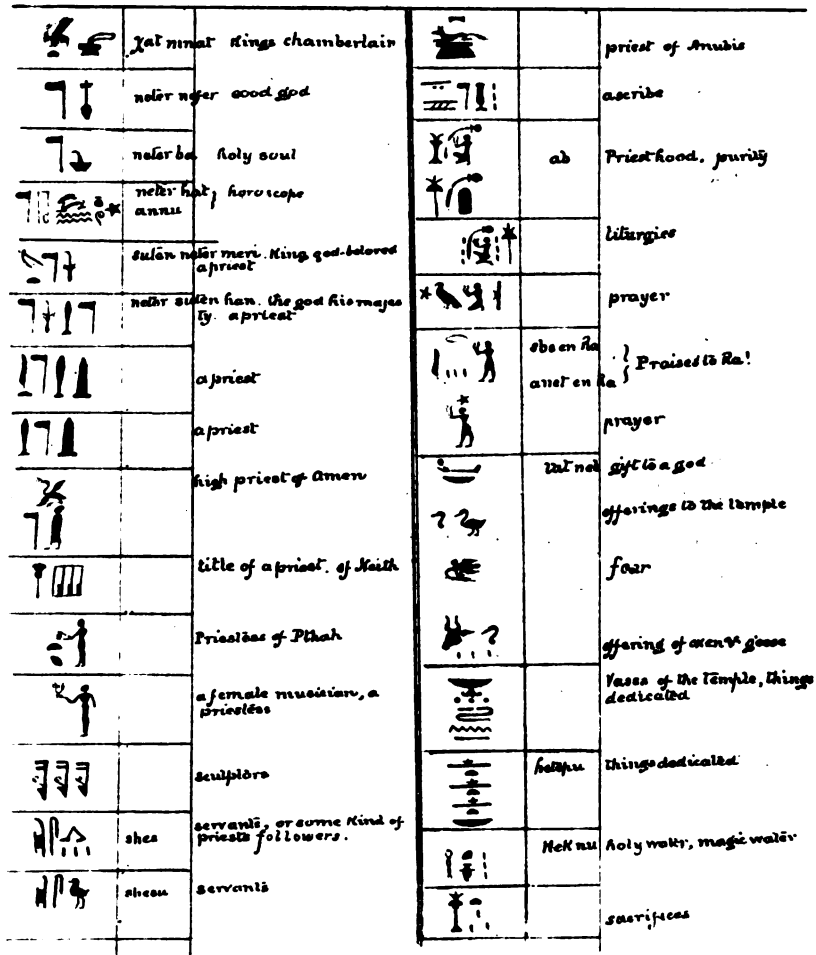 Kings chamberlair
neter nefer good god
neter ba holy soul
neter hat, horoscope
annu
suten neter meri. King god-beloved
a priest
neter suten han. the god his majes
ty. a priest
a priest
a priest
high priest of Amen
title of a priest. of Neith
Priestess of Pthah
a female musician, a
priestess
sculptors
shes servants, or some kind of
priests followers.
shesu servants
priest of Anubis
ascribe
ab Priesthood, purity
liturgies
prayer
en Ra
Praises to Ra!
en Ra
prayer
gift to a god
offerings to the temple
offering of oxen & goose
Vases of the temple, things
dedicated
hetepu things dedicated
HeK nu holy water, magic water
sacrifices